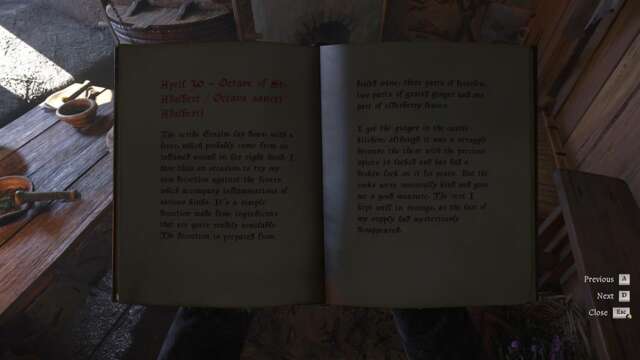 April 30 – Octave of St.
Adalbert / Octava sancti
Adalberti
The scribe Erasim lay down with a
fever, which probably came from an
inflamed wound on his right hand. I
took this as an occasion to try my
own decoction against the fevers
which accompany inflammations of
various kinds. It's a simple
decoction made from ingredients
that are quite readily available.
The decoction is prepared from
boiled wine, three parts of
two parts of grated ginger and one
part of elderberry leaves.
I got the ginger in the castle
kitchen, although it was a struggle
because the chest with the precious
spices is locked and has had a
broken lock on it for years. But the
cooks were unusually kind and gave
me a good measure. The rest I
kept well in storage, as the last of
my supply had mysteriously
disappeared.
Previous A
Next D
Close Esc